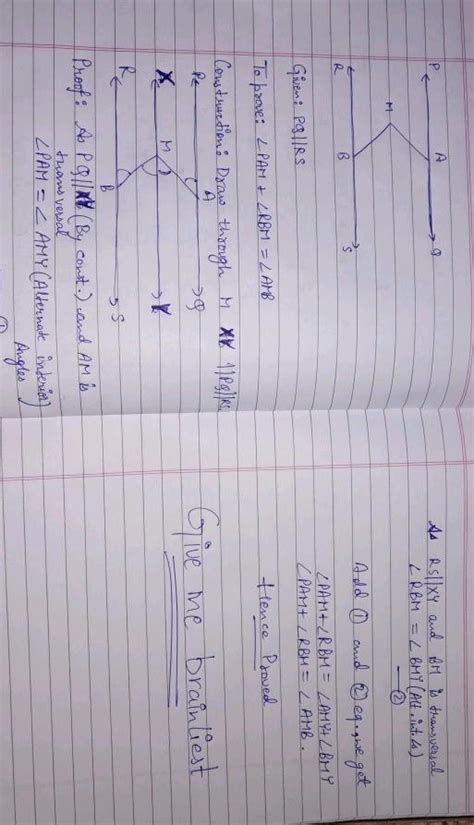 P A Q
M
R B S
Given: PQ||RS
To prove: ∠PAM + ∠RBM = ∠AMB
Construction: Draw through M XY ||PQ||RS
P A Q
X M Y
R B S
Proof: As PQ||XY (By const.) and AM is
transversal
∠PAM = ∠AMY (Alternate interior)
Angles
①
As RS||XY and BM is transversal
∠RBM = ∠BMY (Alt. int. ∠s)
— ②
Add ① and ② eq., we get
∠PAM + ∠RBM = ∠AMY + ∠BMY
∠PAM + ∠RBM = ∠AMB.
Hence Proved
Give me brainliest